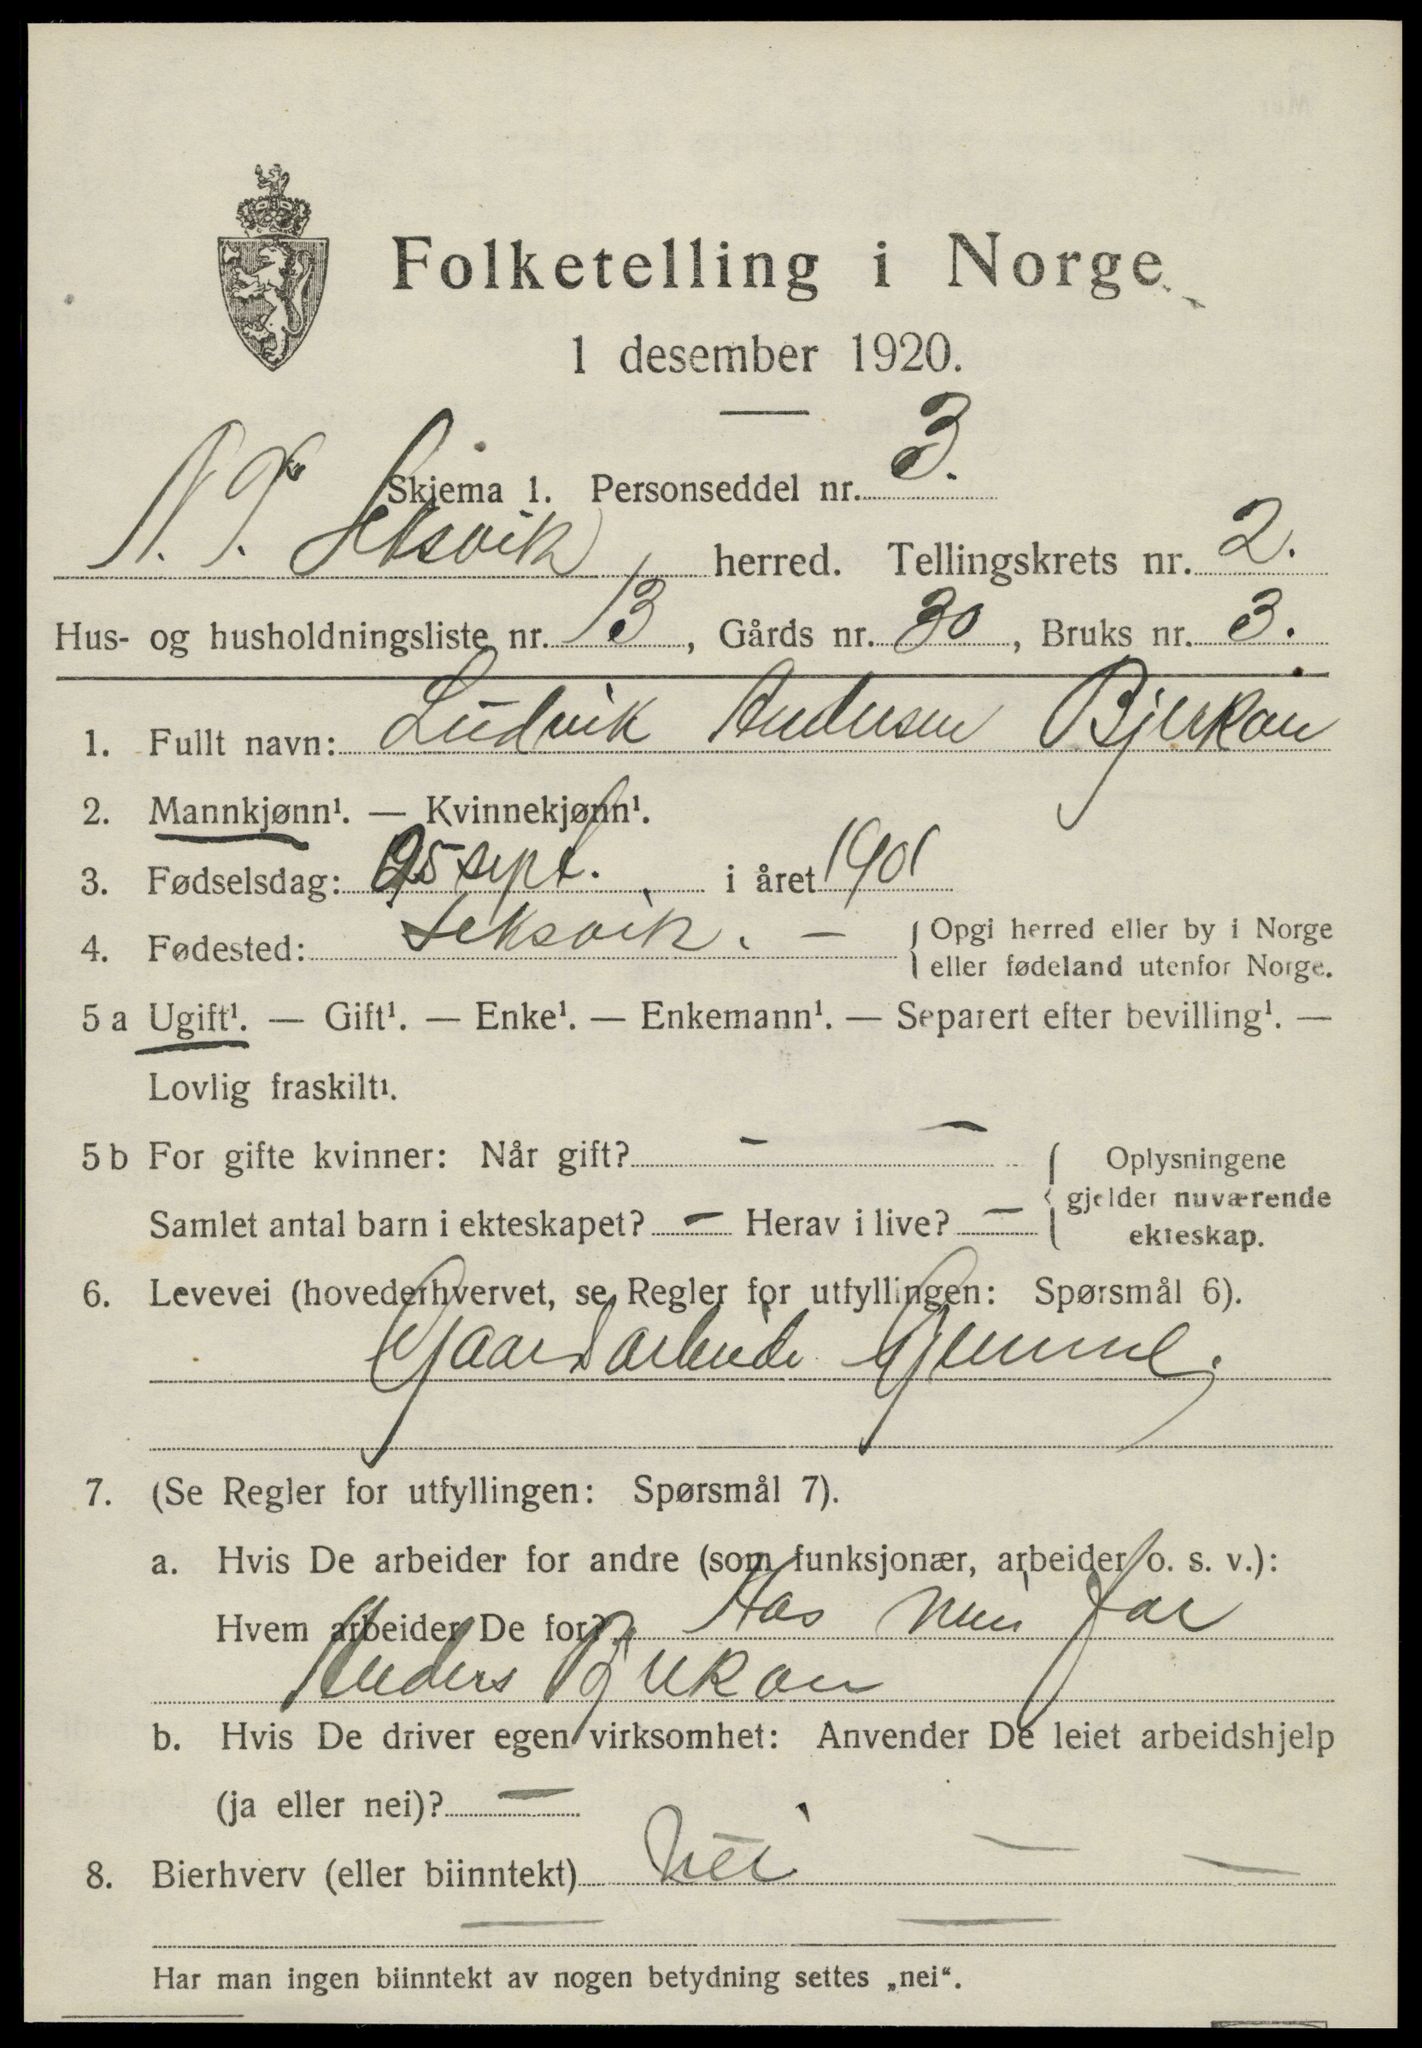 Folketelling i Norge
1 desember 1920.
Skjema 1. Personseddel nr. 3.
N. T. Leksvik herred. Tellingskrets nr. 2.
Hus- og husholdningsliste nr. 13, Gårds nr. 30, Bruks nr. 3.
1. Fullt navn: Ludvik Andersen Bjerkan
2. Mannkjønn¹. — Kvinnekjønn¹.
3. Fødselsdag: 25 sept. i året 1901
4. Fødested: Leksvik. — { Opgi herred eller by i Norge
eller fødeland utenfor Norge.
5 a Ugift¹. — Gift¹. — Enke¹. — Enkemann¹. — Separert efter bevilling¹. —
Lovlig fraskilt¹.
5 b For gifte kvinner: Når gift? — — { Oplysningene
gjelder nuværende
ekteskap.
Samlet antal barn i ekteskapet? — Herav i live? —
6. Levevei (hovederhvervet, se Regler for utfyllingen: Spørsmål 6).
Gaardarbeide Hjemme.
7. (Se Regler for utfyllingen: Spørsmål 7).
a. Hvis De arbeider for andre (som funksjonær, arbeider o. s. v.):
Hvem arbeider De for? Hos min far
Anders Bjerkan
b. Hvis De driver egen virksomhet: Anvender De leiet arbeidshjelp
(ja eller nei)? —
8. Bierhverv (eller biinntekt) Nei — —
— —
Har man ingen biinntekt av nogen betydning settes „nei“.